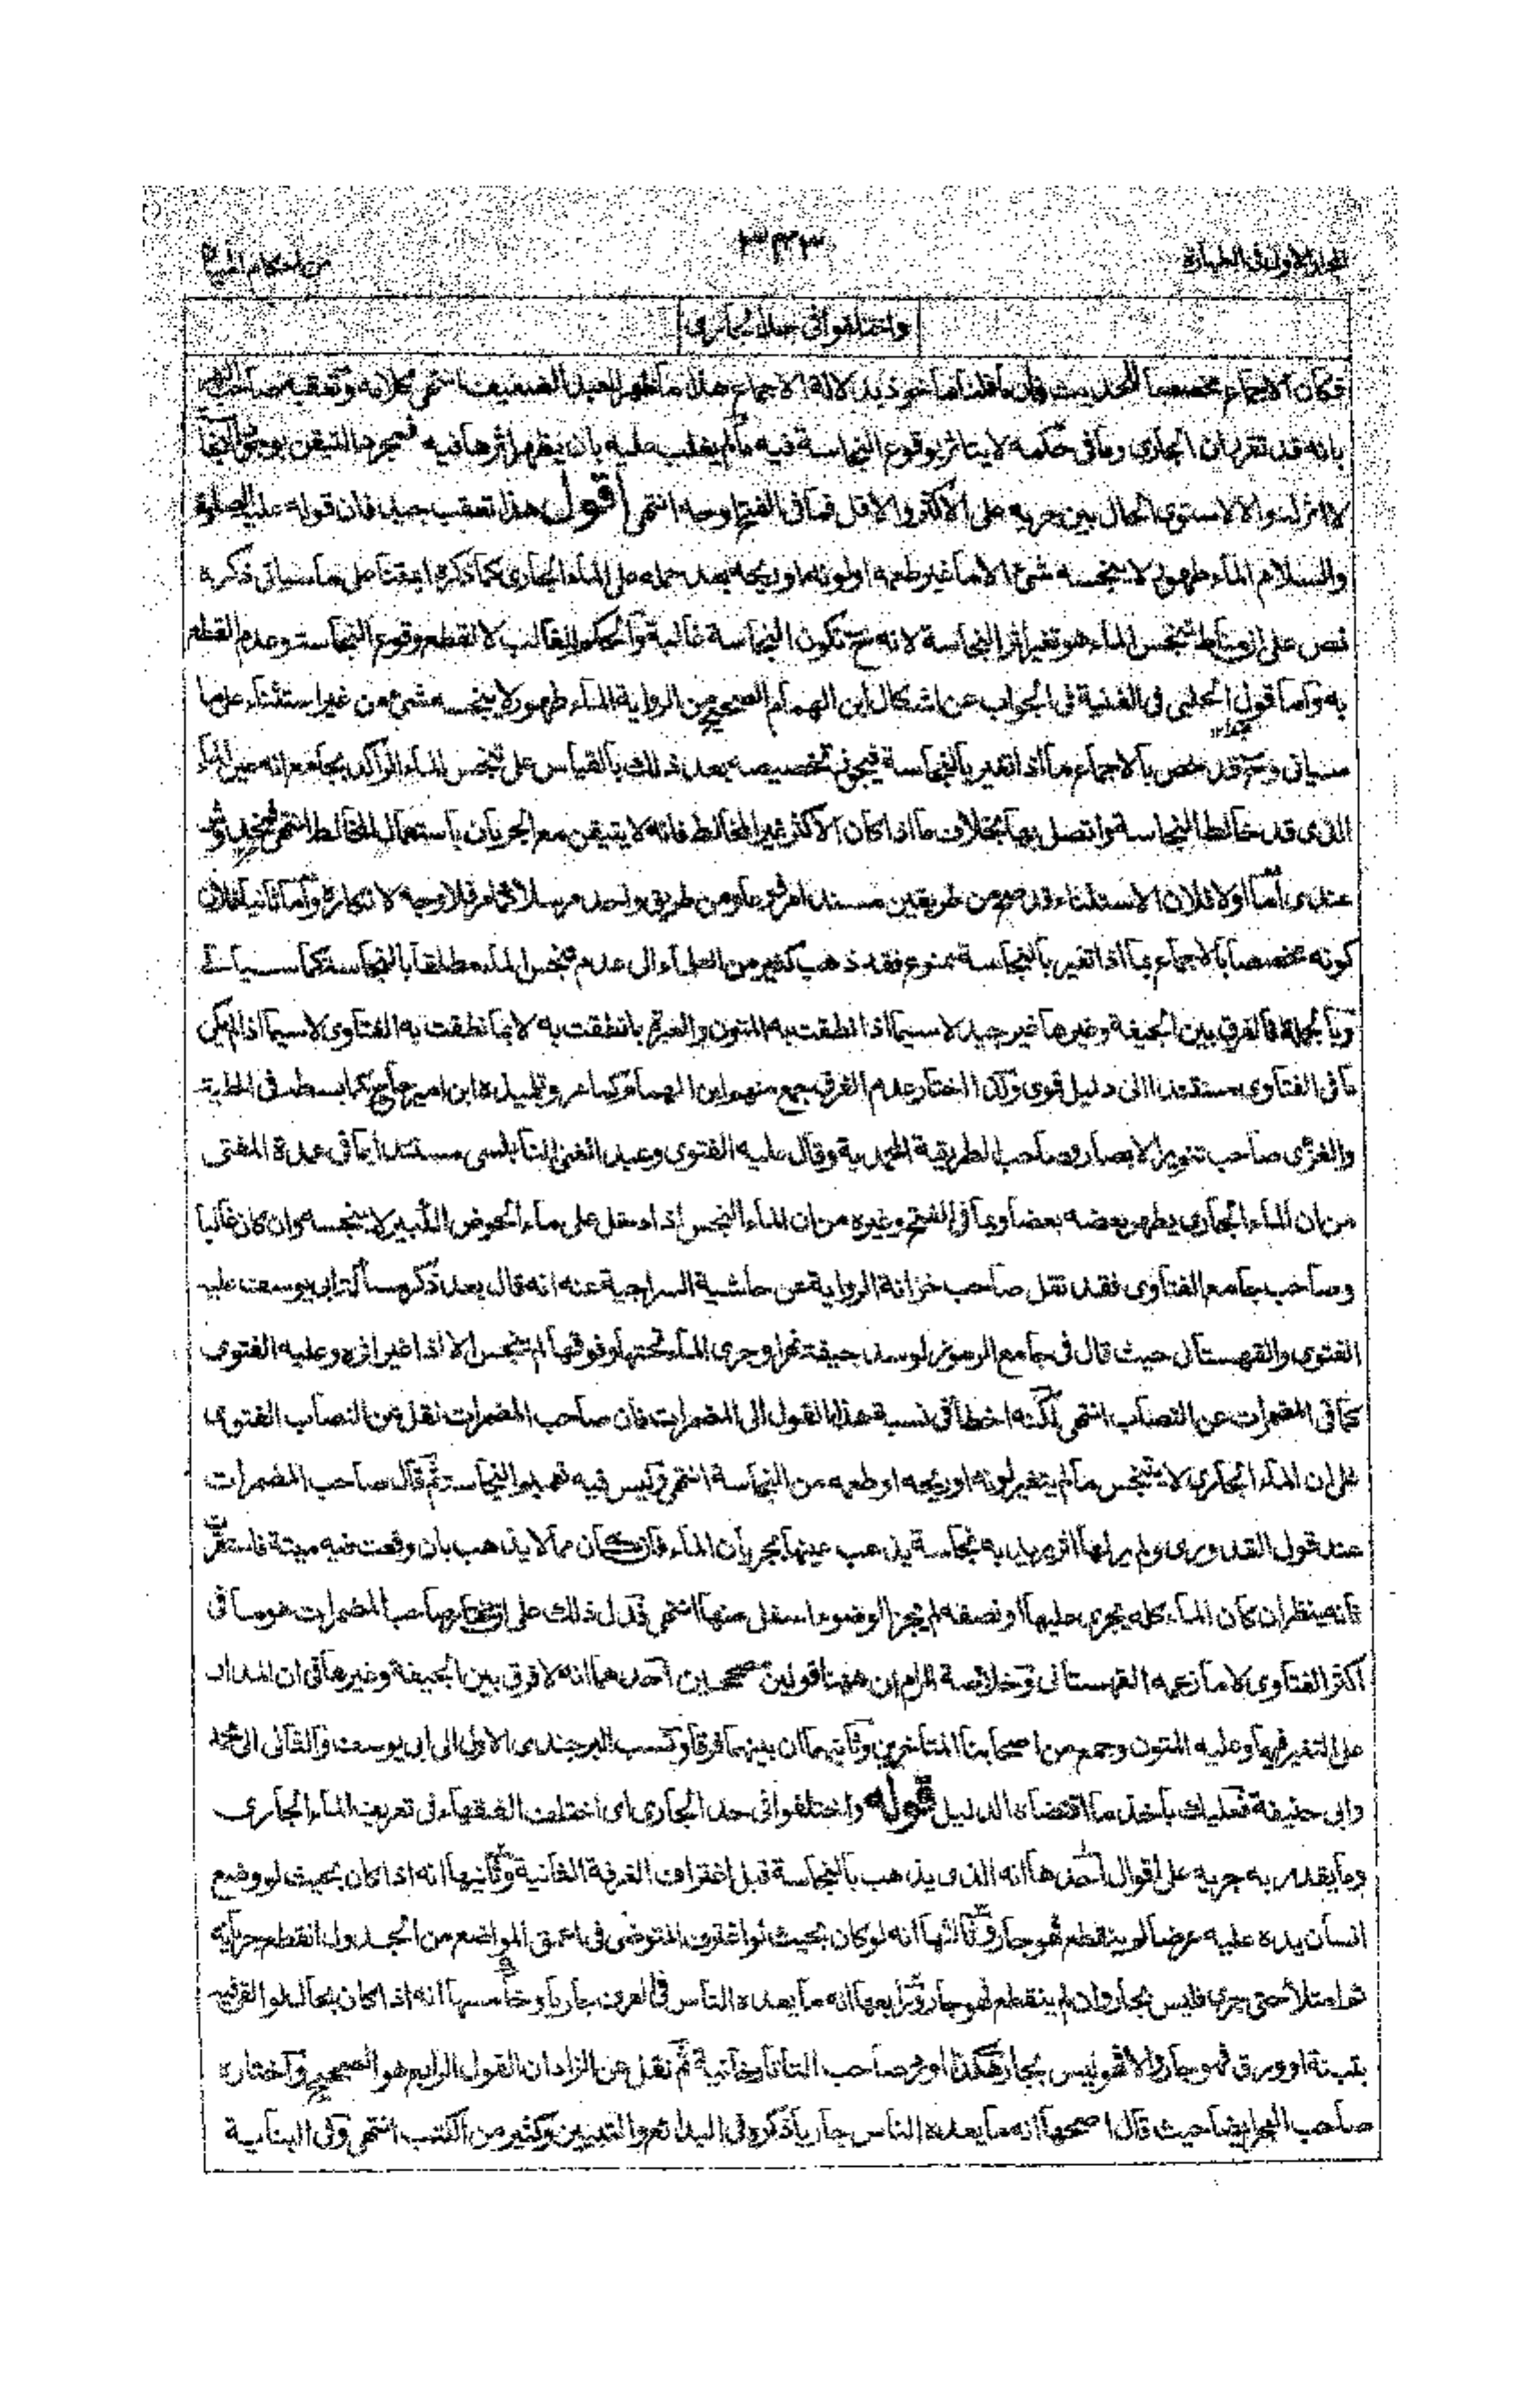 المجلد الاول فى الطهارة
٣٣٣
من احكام المياه
واختلفوا فى حد الجارى
فكان الاجماع مخصصا للحديث فان ما قلنا ماخوذ بدلالة الاجماع هذا ما ظهر للعبد الضعيف انتهى كلامه وتعقبه صاحب
بانه قد تقرر ان الجارى وما فى حكمه لا يتاثر بوقوع النجاسة فيه ما لم يغلب عليه بان يظهر اثرها فيه فمجرد التيقن بوجود
لا اثر له والا لاستوى الحال بين جريه على الاكثر والاقل فما فى الفتح اوجه انتهى اقول هذا تعقب جيد فان قوله عليه الصلوة
والسلام الماء طهور لا ينجسه شئ الا ما غير طعمه او لونه او ريحه بعد حمله على الماء الجارى كما ذكره ايضا على ما سياتى ذكره
نص على ان مناط تنجس الماء هو تغير اثر النجاسة لانه ح تكون النجاسة غالبة والحكم للغالب لا لقطع وقوع النجاسة وعدم القطع
به واما قول الحلبى فى الغنية فى الجواب عن اشكال ابن الهمام الصحيح من الرواية الماء طهور لا ينجسه شئ من غير استثناء على ما
سياتى وح قد خص بالاجماع ما اذا تغير بالنجاسة فيجوز تخصيصه بعد ذلك بالقياس على تنجس الماء الراكد بجامع انه عين الماء
الذى قد خالط النجاسة واتصل بها بخلاف ما اذا كان الاكثر غير المخالط فانه لا يتيقن مع الجريان باستعمال المخالط انتهى فمخدوش
عندى اما اولا فلان الاستثناء قد صح من طريقين مسندا مرفوعا ومن طريق واحد مرسلا كما مر فلا وجه لانكاره واما ثانيا فلان
كونه مخصصا بالاجماع بما اذا تغير بالنجاسة ممنوع فقد ذهب كثير من العلماء الى عدم تنجس الماء مطلقا بالنجاسة كما سياتى
وبالجملة فالفرق بين الجيفة وغيرها غير جيد لا سيما اذا نطقت به المتون والعبرة بما نطقت به لا بما نطقت به الفتاوى لا سيما اذا لم يكن
ما فى الفتاوى مستندا الى دليل قوى وكذا اختار عدم الفرق جمع منهم ابن الهمام كما مر وتلميذه ابن امير حاج كما بسطه فى الحلية
والغزى صاحب تنوير الابصار وصاحب الطريقة المحمدية وقال عليه الفتوى وعبد الغنى النابلسى مستندا بما فى عمدة المفتى
من ان الماء الجارى يطهر بعضه بعضا وبما فى الفتح وغيره من ان الماء النجس اذا دخل على ماء الحوض الكبير لا ينجسه وان كان غالبا
وصاحب جامع الفتاوى فقد نقل صاحب خزانة الرواية عن حاشية السراجية عنه انه قال بعد ذكر مسألة ابى يوسف عليه
الفتوى والقهستانى حيث قال فى جامع الرموز لو سد جيفة نهرا وجرى الماء تحتها وفوقها لم تنجس الا اذا غير اثره وعليه الفتوى
كما فى المضمرات عن النصاب انتهى لكنه اخطأ فى نسبة هذا القول الى المضمرات فان صاحب المضمرات نقل عن النصاب الفتوى
على ان الماء الجارى لا يتنجس ما لم يتغير لونه او ريحه او طعمه من النجاسة انتهى وليس فيه تعميم النجاسة ثم قال صاحب المضمرات
عند قول القدورى ولم ير لها اثر يريد به نجاسة يذهب عينها بجريان الماء فان كان مما لا يذهب بان وقعت فيه ميتة فاستقر
فانه ينظر ان كان الماء كله يجرى عليها او نصفه لم يجز الوضوء اسفل منها انتهى فدل ذلك على ان مختار صاحب المضمرات هو ما فى
اكثر الفتاوى لا ما زعمه القهستانى وخلاصة المرام ان ههنا قولين مصححين احدهما انه لا فرق بين الجيفة وغيرها فى ان المدار
على التغير فيها وعليه المتون وجمع من اصحابنا المتأخرين وثانيهما ان بينهما فرقا ونسب البرجندى الاول الى ابى يوسف والثانى الى محمد
وابى حنيفة فعليك باخذ ما اقتضاه الدليل قوله واختلفوا فى حد الجارى اى اختلف الفقهاء فى تعريف الماء الجارى
وما يقدر به جريه على اقوال احدها انه الذى يذهب بالنجاسة قبل اغتراف الغرفة الثانية وثانيها انه اذا كان بحيث لو وضع
انسان يده عليه عرضا لم ينقطع فهو جار وثالثها انه لو كان بحيث لو اغترف المتوضى فى اعمق المواضع من الجدول انقطع جريانه
ثم امتلأ حتى جرى فليس بجار وان لم ينقطع فهو جار ورابعها انه ما يعده الناس فى العرف جاريا وخامسها انه اذا كان بحال لو القى فيه
بتبنة او ورق فهو جار والا فليس بجار هكذا اورد صاحب التاتارخانية ثم نقل عن الزاد ان القول الرابع هو الصحيح واختاره
صاحب البحر ايضا حيث قال اصحها انه ما يعده الناس جاريا ذكره فى البدائع والتبيين وكثير من الكتب انتهى وفى البناية